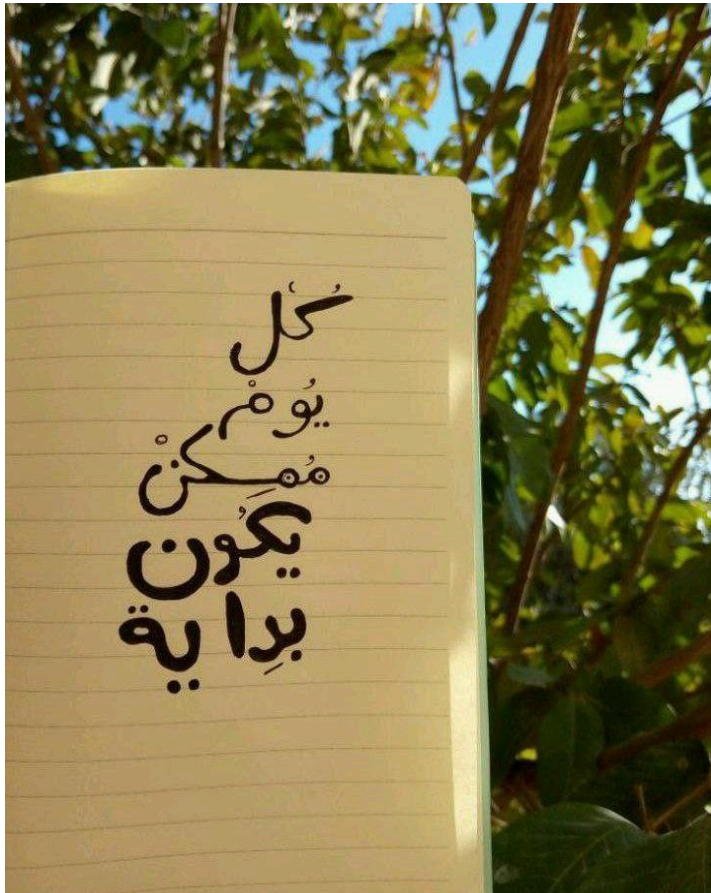 كُل
يُومْ
مُمِكنْ
يكُون
بدِاية